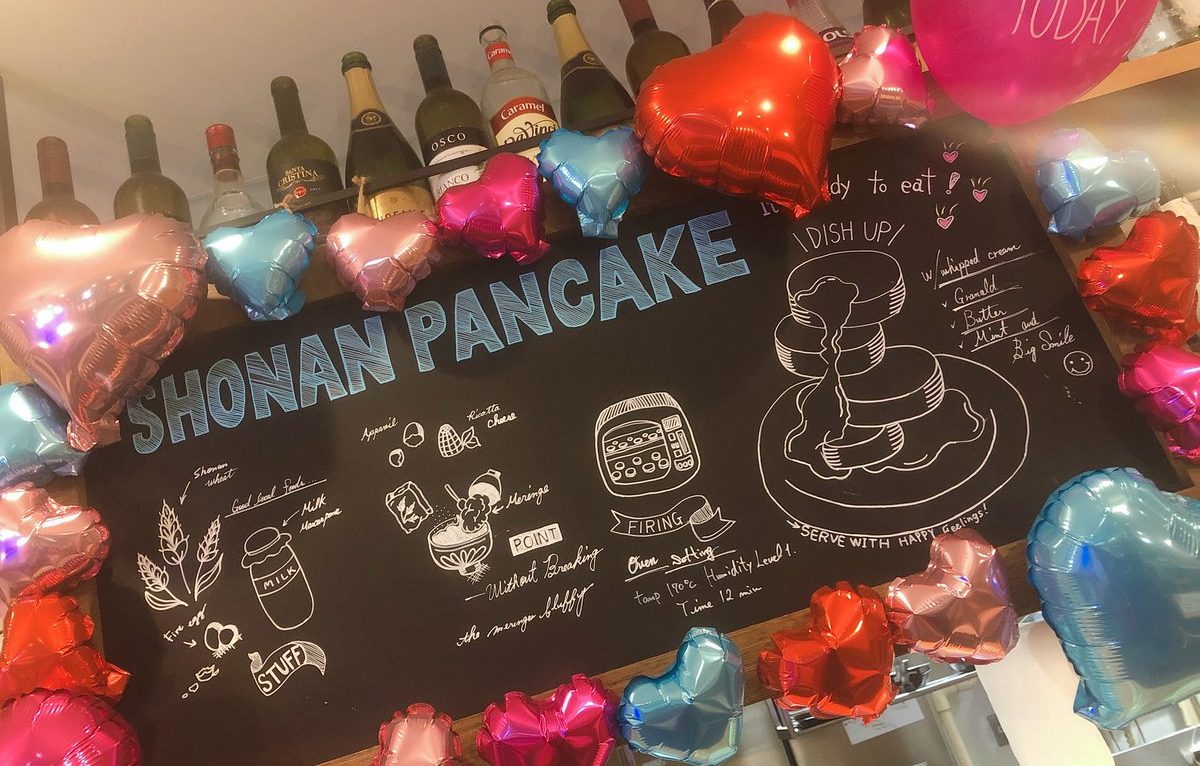 TODAY
Caramel
Caramel
OSCO
BIANCO
SANTA
CRISTINA
dy to eat!
\DISH UP/
SHONAN PANCAKE
w/ whipped cream
✓ Granald
✓ Butter
✓ Mint and
Big Smile
Shonan
wheat
Good local foods...
Milk
MILK
STUFF
Appareil
Ricotta
cheese
Meringe
POINT
Without Breaking
the meringe fluffy
FIRING
Oven Setting
temp 190℃ Humidity Level 1.
Time 12 min
SERVE WITH HAPPY Feelings!